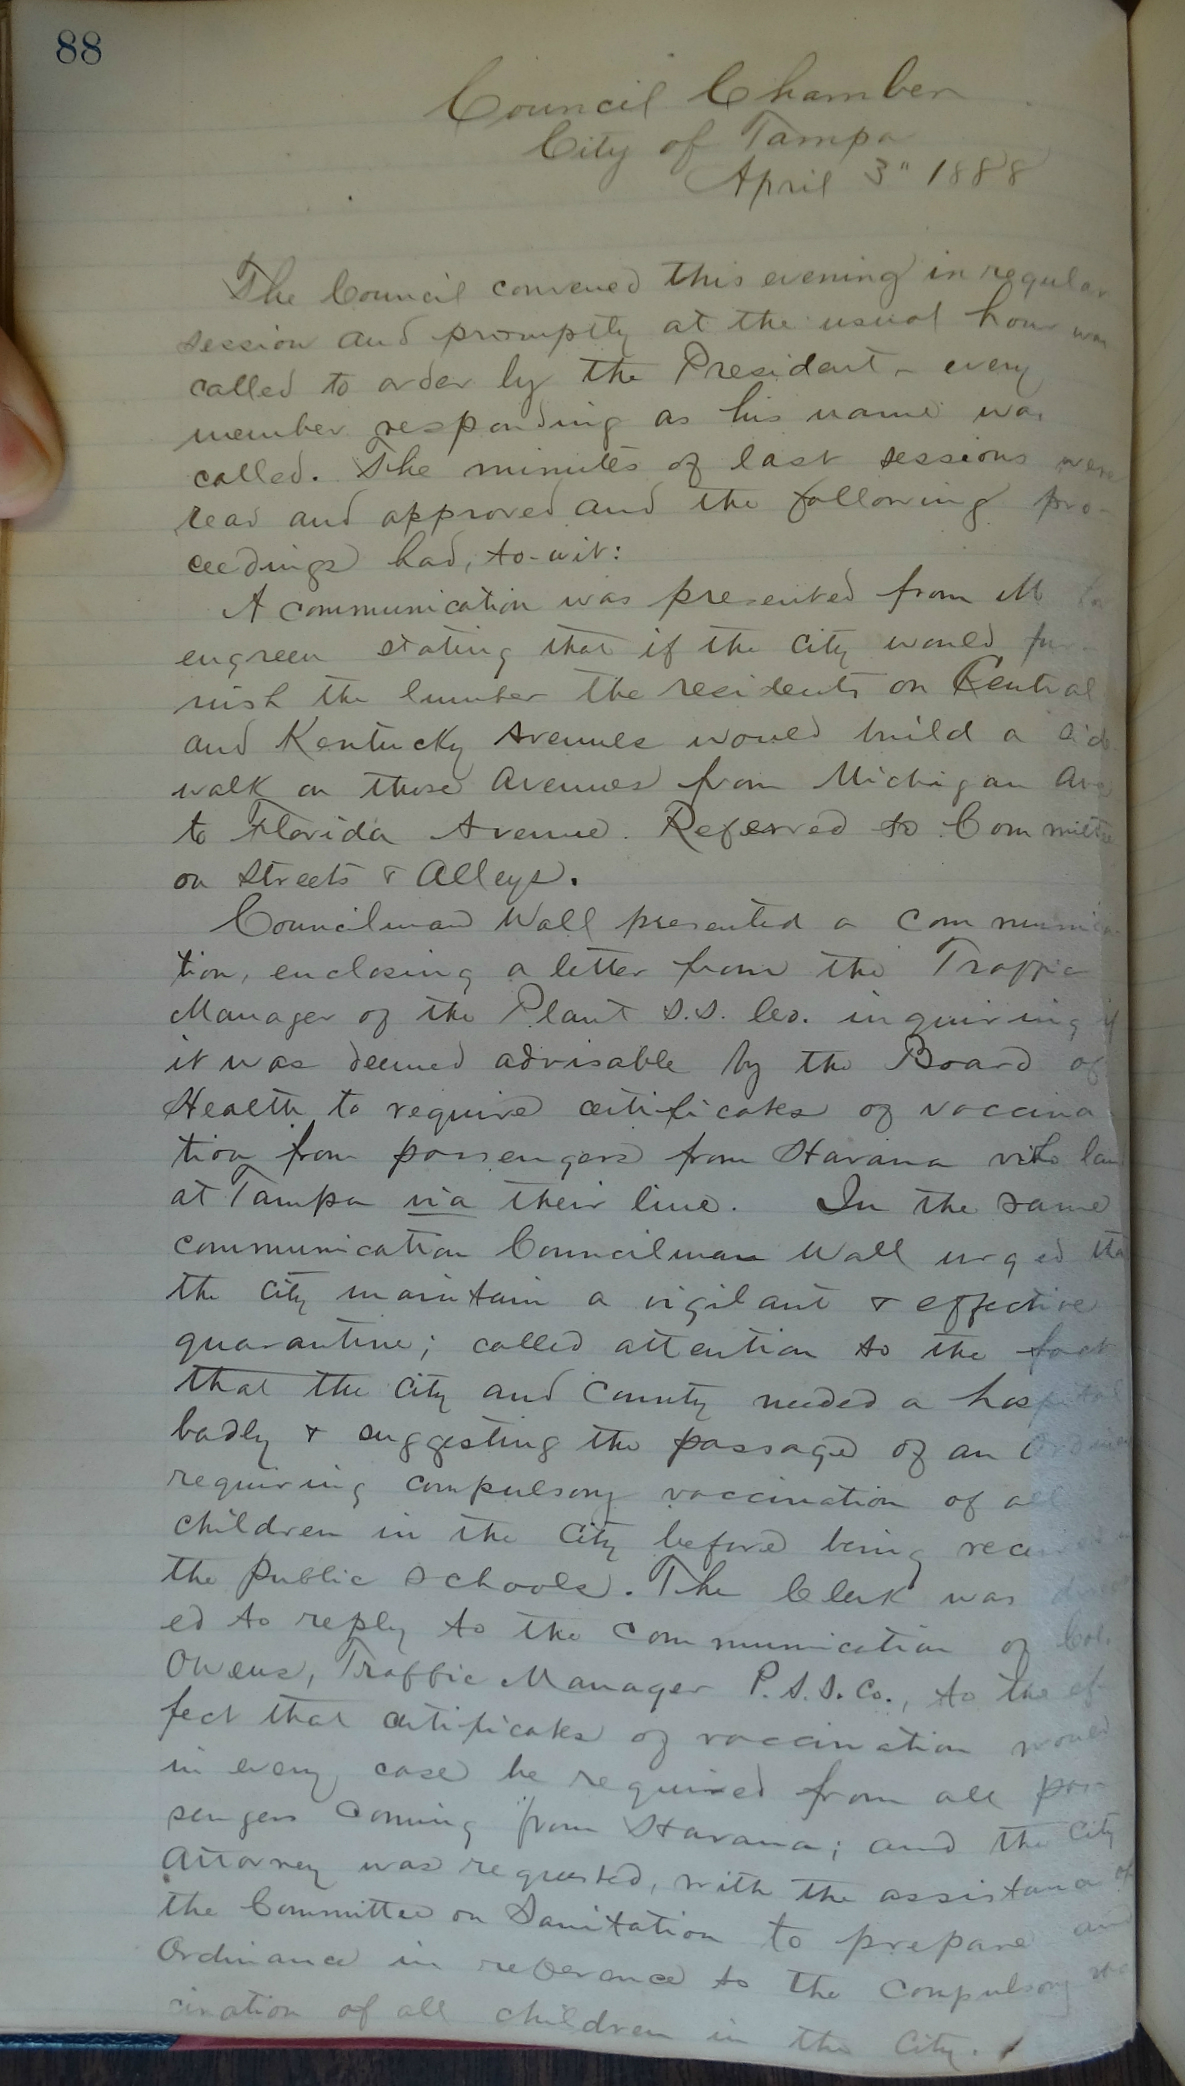 88
Council Chamber
City of Tampa
April 3" 1888
The Council convened this evening in regular
session and promptly at the usual hour was
called to order by the President - every
member responding as his name was
called. The minutes of last sessions were
read and approved and the following pro-
ceedings had, to-wit:
A communication was presented from M
engreen stating that if the city would fur-
nish the lumber the residents on Central
and Kentucky Avenues would build a side
walk on those avenues from Michigan Ave
to Florida Avenue. Referred to Committee
on Streets & Alleys.
Councilman Wall presented a communica
tion, enclosing a letter from the Traffic
Manager of the Plant S.S. Co. inquiring if
it was deemed advisable by the Board of
Health to require certificates of vaccina
tion from passengers from Havana who land
at Tampa via their line. In the same
communication Councilman Wall urged that
the city maintain a vigilant & effective
quarantine; called attention to the fact
that the city and County needed a hospital
badly & suggesting the passage of an Ordinance
requiring compulsory vaccination of all
children in the city before being received in
the public schools. The Clerk was direct
ed to reply to the communication of Col.
Owens, Traffic Manager P.S.S.Co., to the ef-
fect that certificates of vaccination would
in every case be required from all pas-
sengers coming from Havana; and the City
Attorney was requested, with the assistance of
the Committee on Sanitation to prepare an
Ordinance in reference to the compulsory vac
cination of all children in the City.